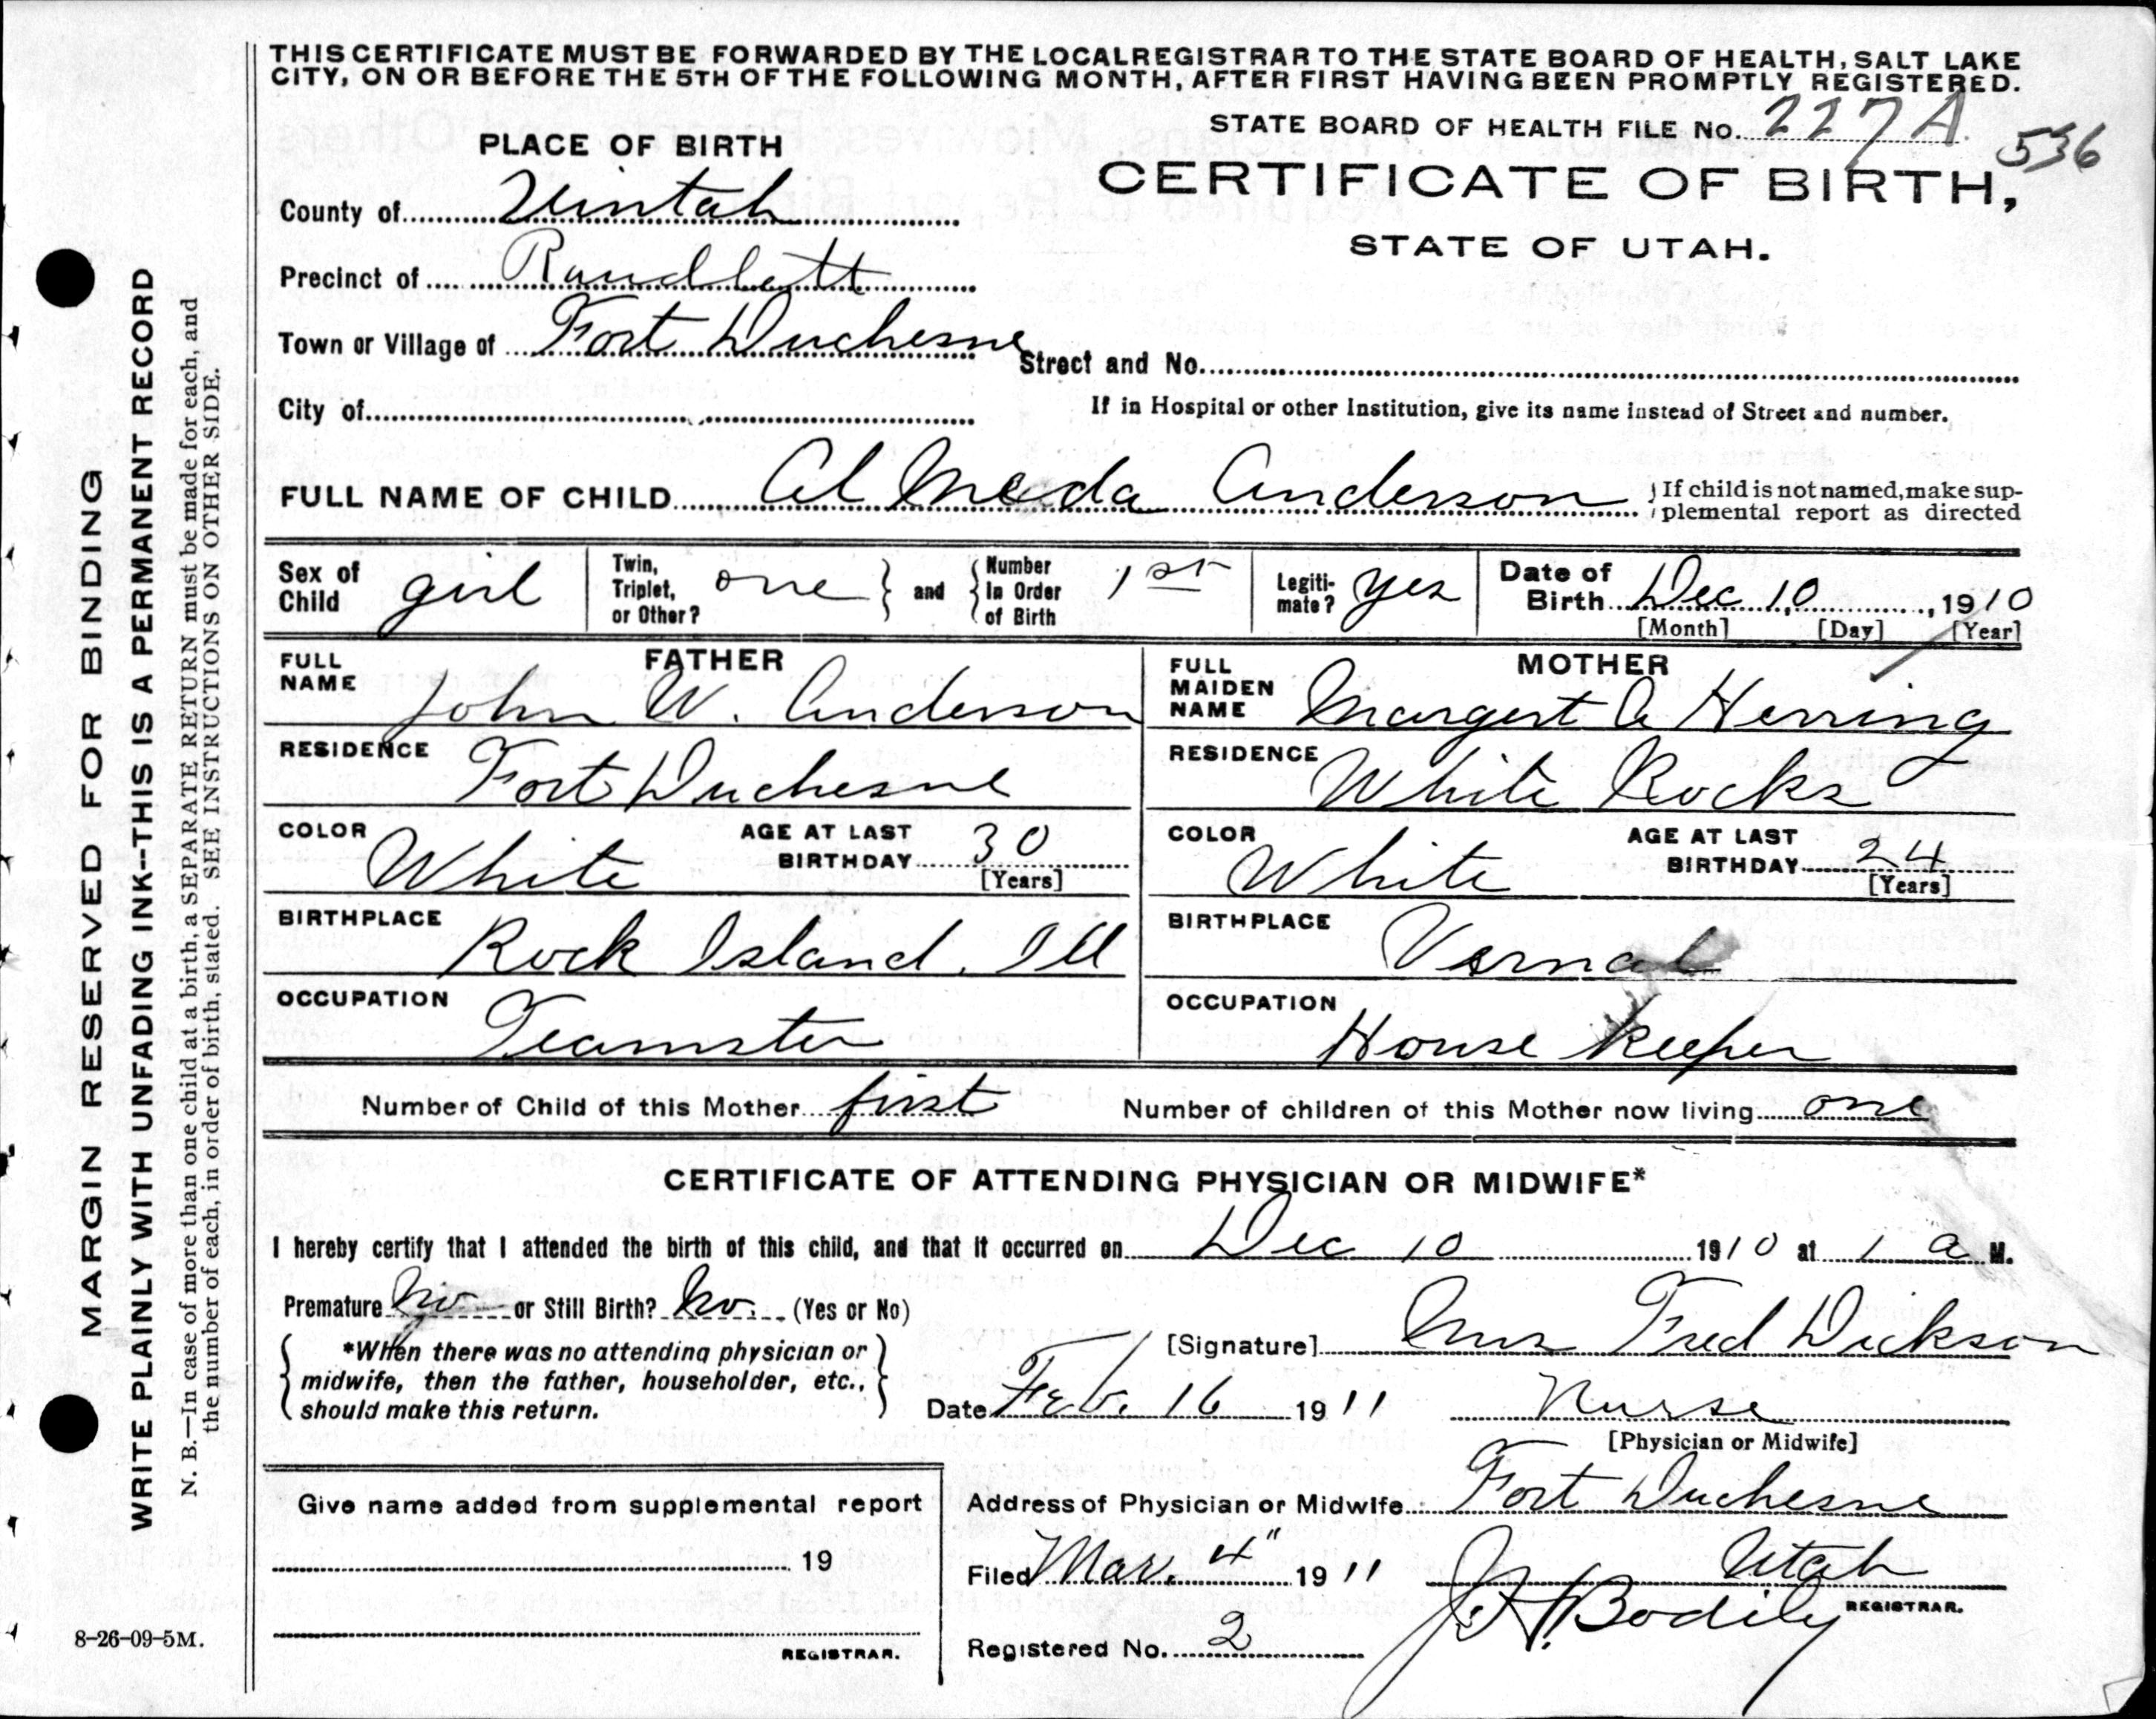 THIS CERTIFICATE MUST BE FORWARDED BY THE LOCAL REGISTRAR TO THE STATE BOARD OF HEALTH, SALT LAKE
CITY, ON OR BEFORE THE 5TH OF THE FOLLOWING MONTH, AFTER FIRST HAVING BEEN PROMPTLY REGISTERED.
STATE BOARD OF HEALTH FILE No. 227A 536
PLACE OF BIRTH
CERTIFICATE OF BIRTH,
STATE OF UTAH.
County of Uintah
Precinct of Randlett
Town or Village of Fort Duchesne
Street and No.
City of
If in Hospital or other Institution, give its name instead of Street and number.
FULL NAME OF CHILD Al Meda Anderson
If child is not named, make sup-
plemental report as directed
Sex of Child girl
Twin, Triplet, or Other? one
and
Number in Order of Birth 1st
Legiti-mate? yes
Date of Birth Dec 10, 1910
[Month] [Day] [Year]
FATHER
FULL NAME John W. Anderson
RESIDENCE Fort Duchesne
COLOR White
AGE AT LAST BIRTHDAY 30
[Years]
BIRTHPLACE Rock Island. Ill
OCCUPATION Teamster
MOTHER
FULL MAIDEN NAME Margert A Herring
RESIDENCE White Rocks
COLOR White
AGE AT LAST BIRTHDAY 24
[Years]
BIRTHPLACE Vernal
OCCUPATION House Keeper
Number of Child of this Mother first
Number of children of this Mother now living one
CERTIFICATE OF ATTENDING PHYSICIAN OR MIDWIFE*
I hereby certify that I attended the birth of this child, and that it occurred on Dec 10 1910 at 1 a M.
Premature No or Still Birth? No. (Yes or No)
[Signature] Mrs Fred Dickson
*When there was no attending physician or
midwife, then the father, householder, etc.,
should make this return.
Date Feb. 16 1911
Nurse
[Physician or Midwife]
Give name added from supplemental report
19
REGISTRAR.
Address of Physician or Midwife Fort Duchesne
Utah
Filed Mar. 4" 1911
J. H. Bodily
REGISTRAR.
Registered No. 2
8-26-09-5M.
MARGIN RESERVED FOR BINDING
WRITE PLAINLY WITH UNFADING INK--THIS IS A PERMANENT RECORD
N. B.—In case of more than one child at a birth, a SEPARATE RETURN must be made for each, and
the number of each, in order of birth, stated. SEE INSTRUCTIONS ON OTHER SIDE.